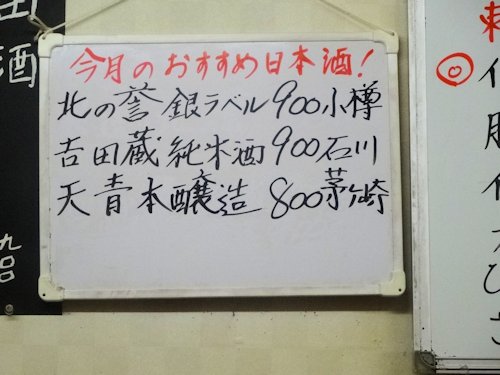 今月のおすすめ日本酒!
北の誉 銀ラベル 900 小樽
吉田蔵 純米酒 900 石川
天青 本醸造 800 茅ヶ崎
酒